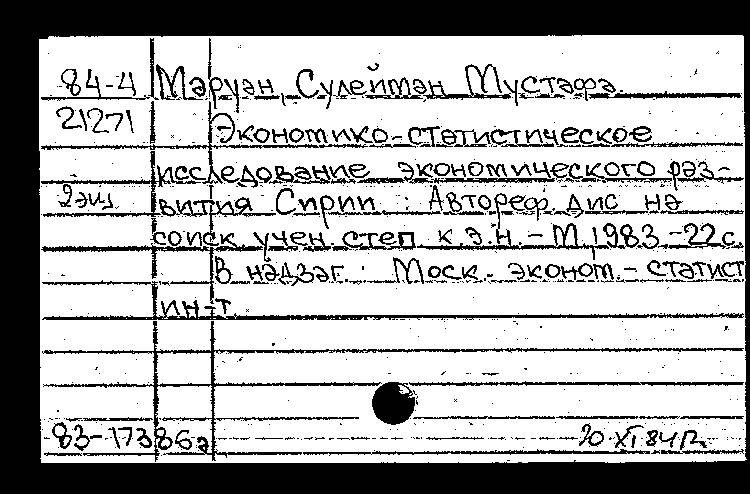 84-4 Маруан, Сулейман Мустафа.
21271 Экономико-статистическое
исследование экономического раз-
2экз вития Сирии. : Автореф. дис на
соиск учен. степ. к.э.н. - М. 1983 - 22 с.
В надзаг. : Моск. эконом.- статист
ин-т
83-17386а 20 XI 84 г.